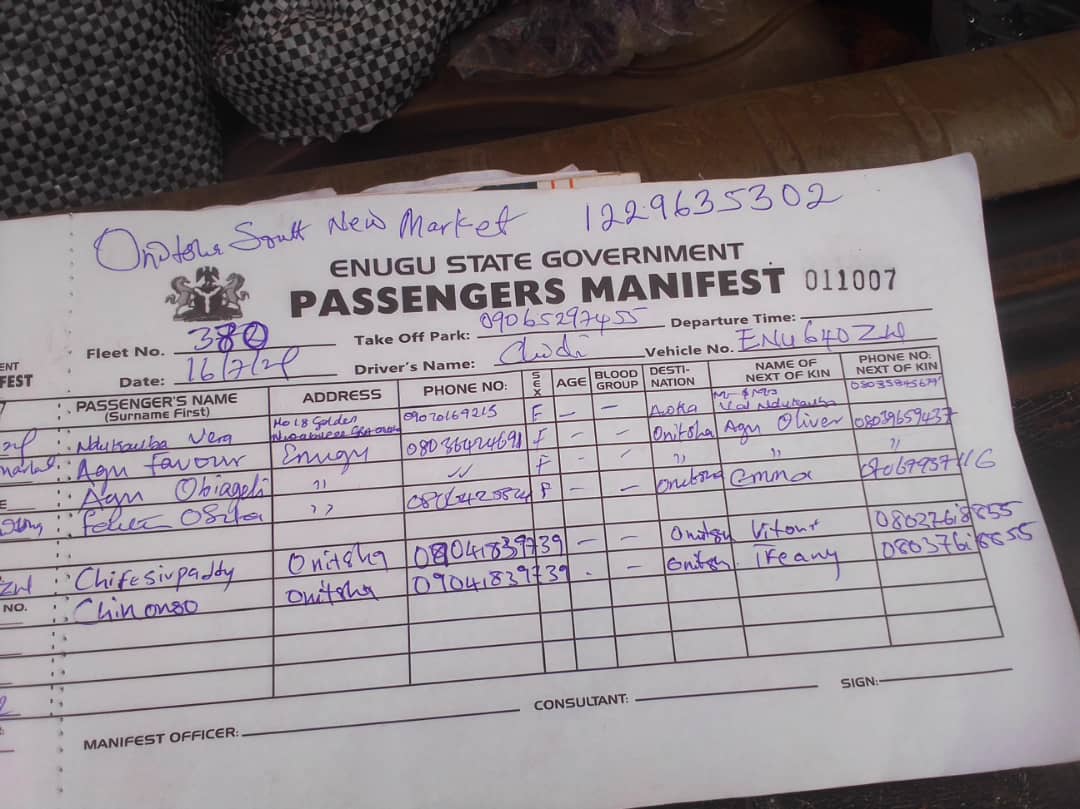 Onitsha South New Market 1229635302
ENUGU STATE GOVERNMENT
PASSENGERS MANIFEST 011007
Fleet No. 380 Take Off Park: 09065297455 Departure Time:
Date: 16/7/21 Driver's Name: Chidi Vehicle No. ENU 640 ZW
ENT
FEST
PASSENGER'S NAME (Surname First) ADDRESS PHONE NO: SEX AGE BLOOD GROUP DESTI-NATION NAME OF NEXT OF KIN PHONE NO: NEXT OF KIN
Ndukauba Vera No 18 Golden 09020169215 F — — Awka Mr & Mrs Val Ndukauba
Agu favour Enugu 08036424691 F - - Onitsha Agu Oliver 08039659437
Agu Obiageli " " F - - " " "
" F - - Onitsha Emma
Chifesirpaddy Onitsha 08041839739 - - Onitsha 08027618855
Chinonso Onitsha 09041839739 - - Onitsha Ifeany 08037618855
NO.
MANIFEST OFFICER: CONSULTANT: SIGN: